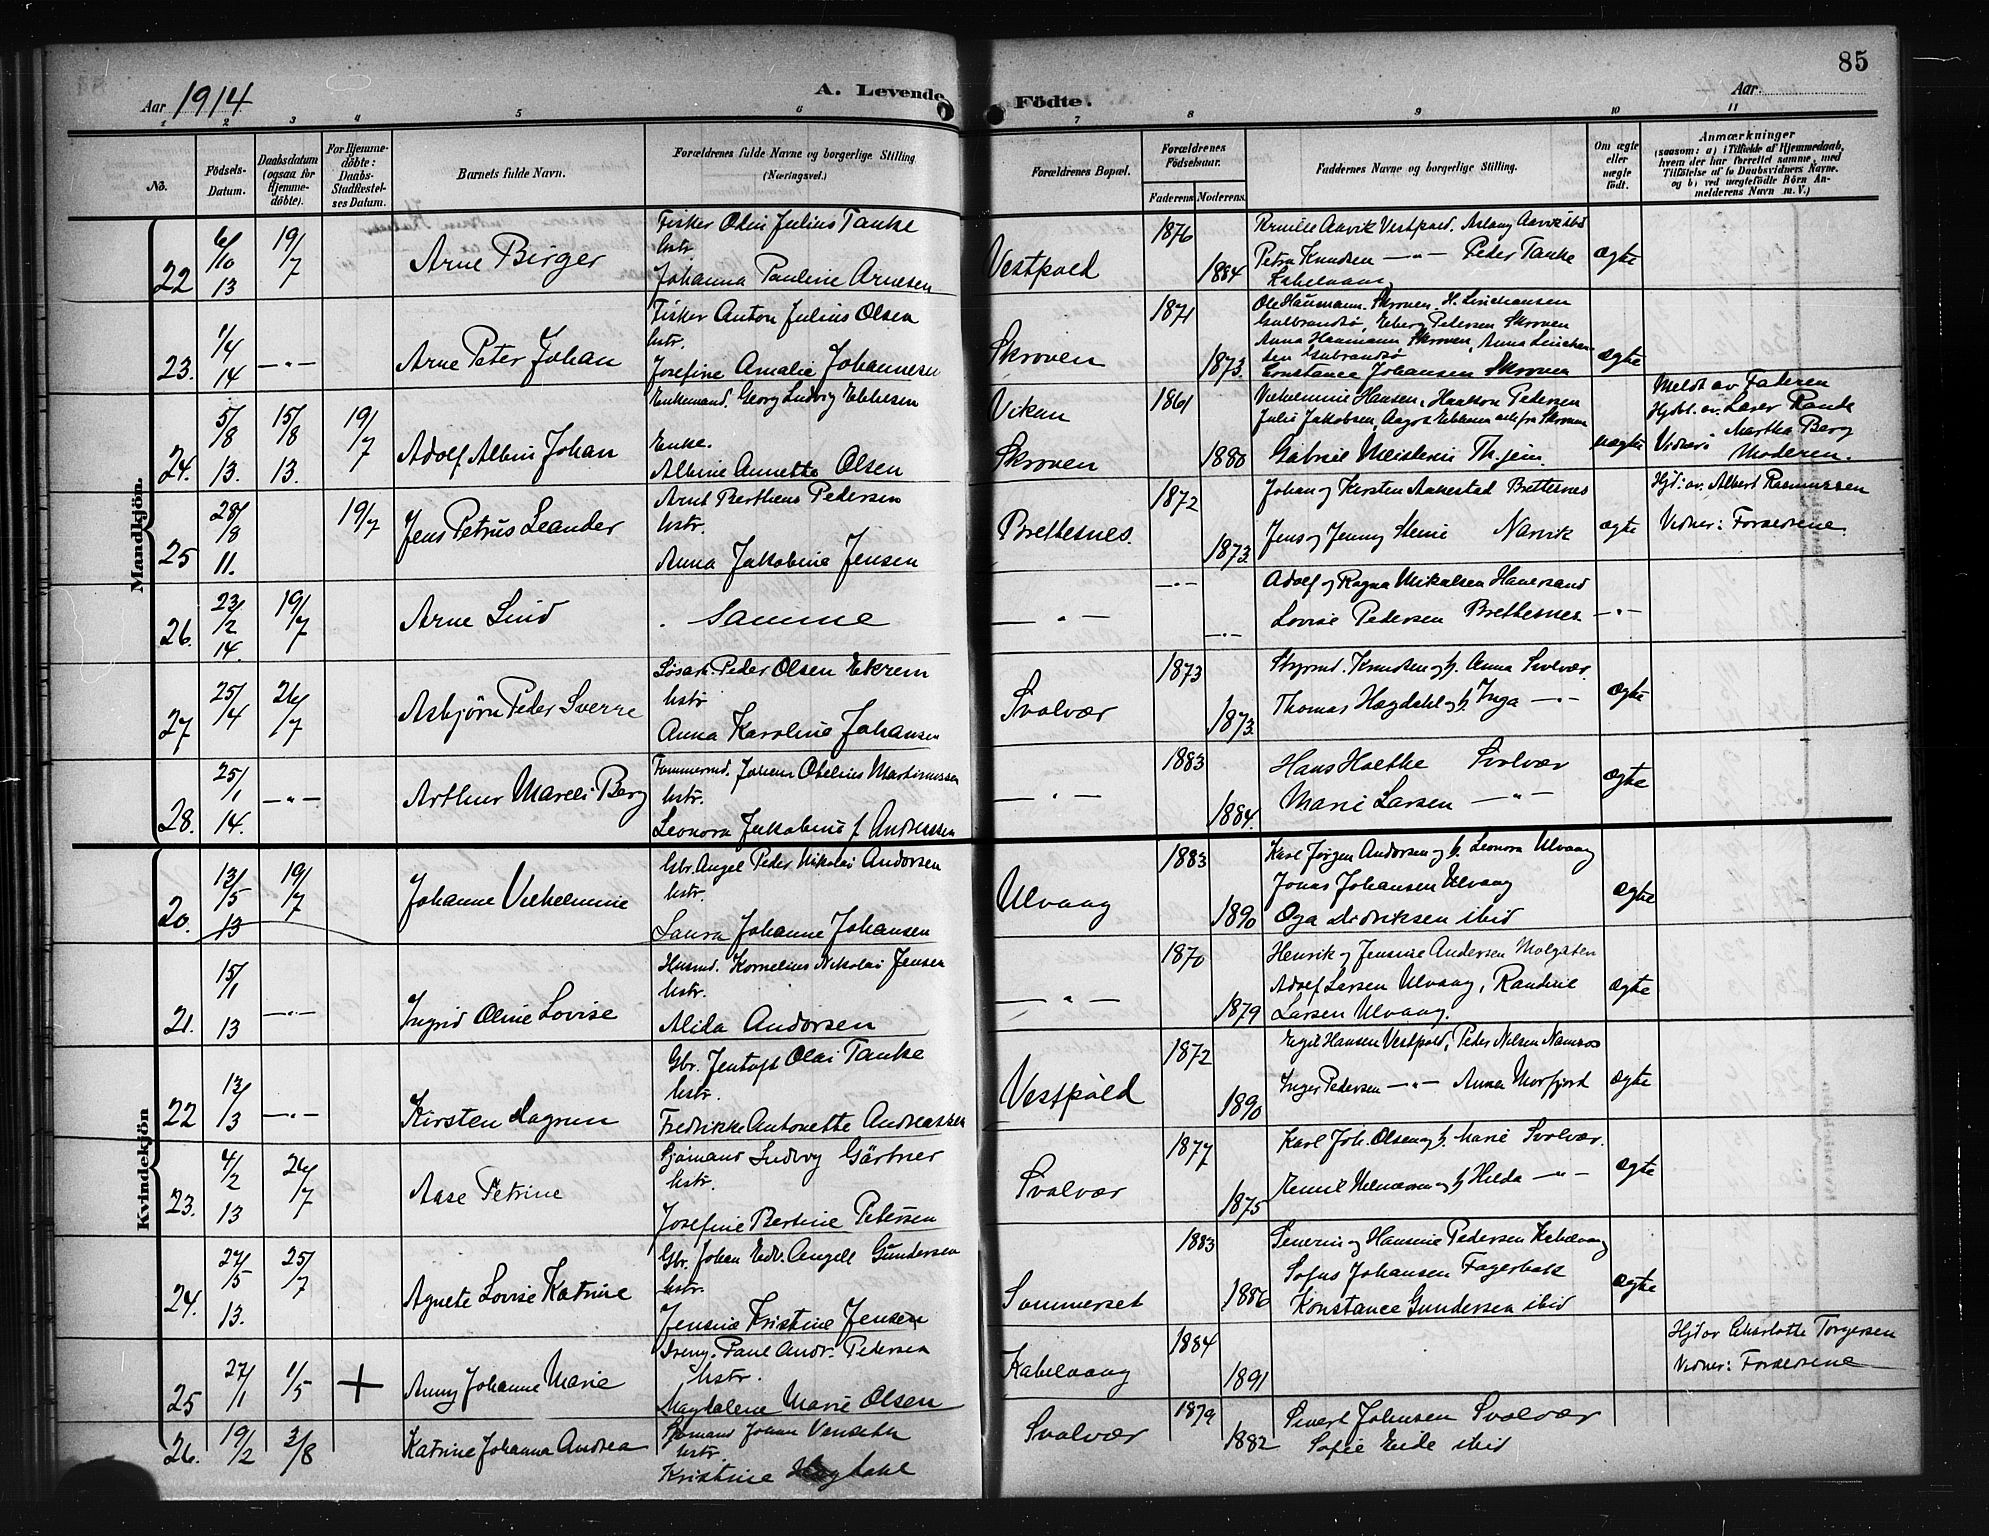 85
Aar 1914
A. Levende Födte.
Aar
1 2 3 4 5 6 7 8 9 10 11
No.
Födsels-Datum.
Daabsdatum (ogsaa for Hjemme-döbte).
For Hjemme-döbte: Daabs-Stadfæstel-ses Datum.
Barnets fulde Navn.
Forældrenes fulde Navne og borgerlige Stilling
(Næringsvei.)
Forældrenes Bopæl.
Forældrenes Födselsaar.
Faderens. Moderens.
Faddernes Navne og borgerlige Stilling.
Om ægte eller uægte födt.
Anmærkninger
(saasom: a) i Tilfælde af Hjemmedaab,
hvem der har forrettet samme, med
Tilföielse af to Daabsvidners Navne.
og b) ved uægtefödte Börn An-
melderens Navn m. V.)
Mandkjön.
22 6/10 13 19/7 Arne Birger
Fisker Odin Julius Tanke
Hstr.
Johanna Pauline Arnesen
Vestpold 1876 1884
Pernille Aavik Vestpold. Aslaug
Petra Knudsen —"— Peder Tanke
Kabelvaag
ægte
23. 1/4 14 —"— Arne Peter Johan
Fisker Anton Julius Olsen
Hstr.
Josefine Amalie Johannesen
Skroven 1871 1873.
Ole Haumann. Skroven. H. Linchausen
Gulbrandsø, Peder Pedersen Skroven
Anna Haumann Skroven, Anna Linchau-
sen Gulbrandsø
Constance Johansen Skroven
ægte
24. 5/8 13. 15/8 13. 19/7 Adolf Albin Johan
Enkemand. Georg Ludvig Ebbesen
Enke.
Albine Annette Olsen
Vikan
Skroven 1861 1880
Vilhelmine Hansen, Haakon Pedersen
Julie Jakobsen, Aagot Ebbesen alle fra Skroven
Gabriel
uægte
Meldt av Faderen
Hjdbt. av. Laser Rande
Vidner: Martha Berg
Moderen.
25 28/8 11. 19/7 Jens Petrus Leander
Arnt Bertheus Pedersen
Hstr.
Anna Jakobine Jensen
Brettesnes. 1872 1873.
Johan og Kirsten Aakestad Brettesnes
Jens og Jenny Steine Narvik
ægte
Hjd: av. Albert Rasmussen
Vidner: Forældrene.
26. 23/2 14. 19/7 Arne Lind
Samme
—"— —"— —"—
Adolf og Ragna Mikalsen Haversand
Lovise Pedersen Brettesnes
—"—
27 25/4 26/7 Asbjørn Peder Sverre
Løsarb. Peder Olsen Ekrem
Hstr
Anna Karoline Johansen
Svolvær 1873 1873.
Styrmd. Knudsen og h. Anna Svolvær.
Thomas Hagdahl og h. Inga —"—
ægte
28. 25/1 14. —"— Arthur Mareli Berg
Tømmermd. Johan Obelius Martinussen
Hstr.
Leonora Jakobine f. Andreassen
—"— 1883 1884.
Hans Holthe Svolvær
Marie Larsen —"—
ægte
Kvindekjön
20. 13/5 13 19/7 Johanne Vilhelmine
Gbr. Angel Peder Nikolai Andorsen
Hstr.
Laura Johanne Johansen
Ulvaag 1883 1890
Karl Jørgen Andorsen og h. Leonora Ulvaag
Jonas Johansen Ulvaag
Oga Didriksen ibid
ægte
21. 15/1 13 —"— Ingrid Oline Lovise
Husmd. Kornelius Nikolai Jensen
Hstr.
Alida Andorsen
—"— 1870 1879
Henrik og Jensine Andersen Molgaten
Adolf Larsen Ulvaag, Randine
Larsen Ulvaag.
ægte
22 13/13 —"— Kirsten Dagrun
Gbr. Jentoft Olai Tanke
Hstr.
Fredrikke Antonette Andreassen
Vestpold 1872 1890
Eigil Hansen Vestpold, Peder Nilsen Namsos
Inger Pedersen —"— Anna Morfjord
ægte
23. 4/2 13 26/7 Aase Petrine
Sjømand Ludvig Gärtner
Hstr.
Josefine Bertine Petersen
Svolvær 1877 1875
Karl Joh. Olsen og h. Marie Svolvær.
og h Hilda —"—
ægte
24. 27/5 13. 25/7 Agnete Lovise Katrine
Gbr. Johan Edv. Angell Gundersen
Hstr.
Jensine Kristine Jensen
Sommerset 1883 1886
Severin og Hansine Pedersen Kabelvaag
Sofus Johansen Fagerbak
Konstance Gundersen ibid
ægte
25 27/1 1/5 + Anny Johanne Marie
Dreng. Paul Andr. Pedersen
Hstr.
Magdalene Marie Olsen
Kabelvaag 1884 1891
Hjd av Charlotte Torgersen
Vidner: Forældrene
26. 19/2 2/8 Katrine Johanna Andrea
Sjømand Johan
Hstr.
Kristine Hagdahl
Svolvær 1879 1882
Sivert Johnsen Svolvær
Sofie Eide ibid